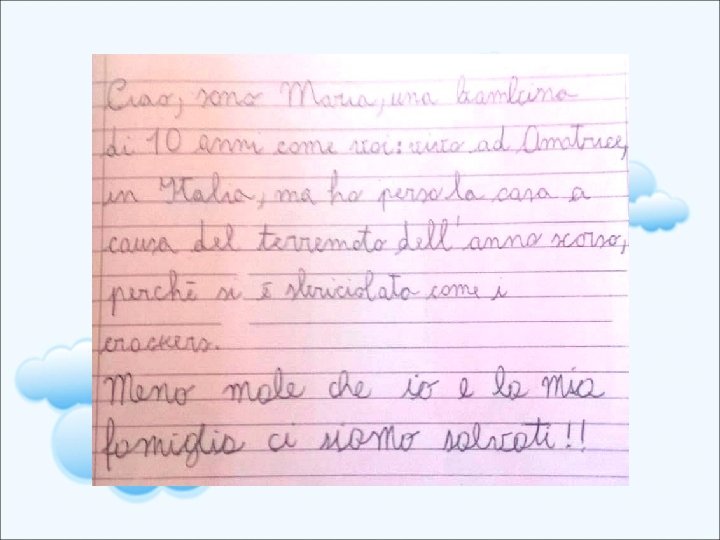 Ciao, sono Maria, una bambina
di 10 anni come voi: vivo ad Amatrice,
in Italia, ma ho perso la casa a
causa del terremoto dell'anno scorso,
perchè si è sbriciolata come i
crackers.
Meno male che io e la mia
famiglia ci siamo salvati!!